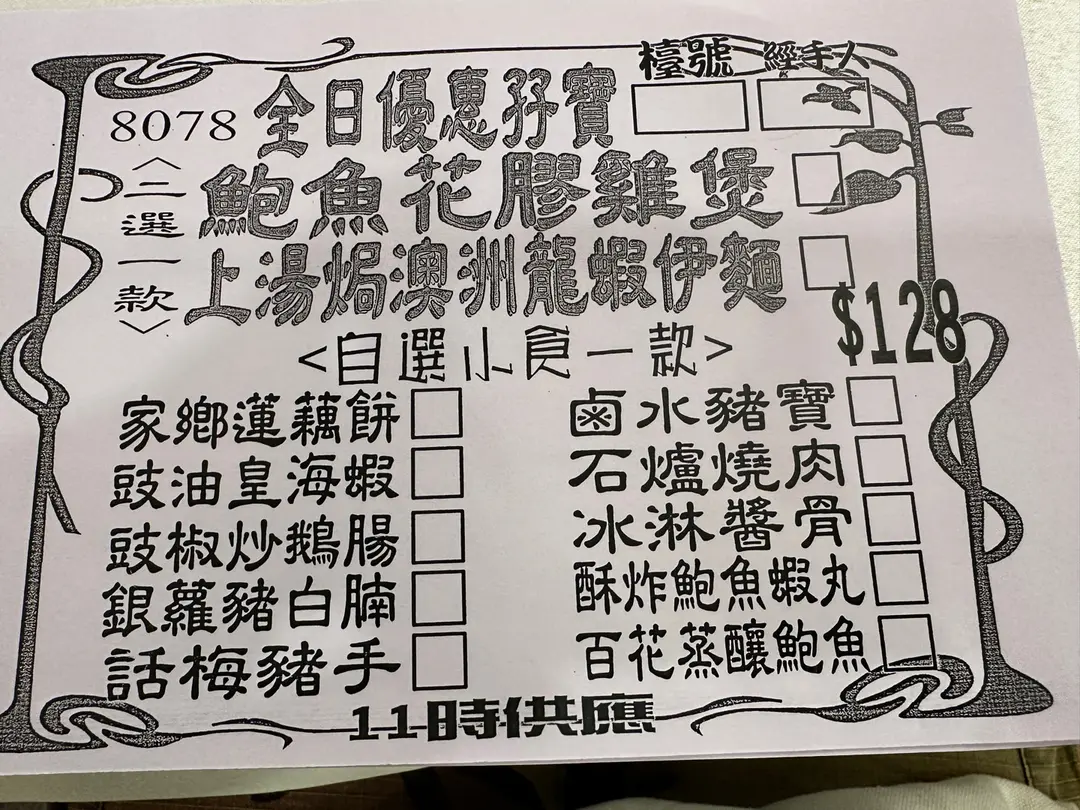 檯號 經手人
8078 全日優惠孖寶
〈二選一款〉
鮑魚花膠雞煲
上湯焗澳洲龍蝦伊麵
$128
<自選小食一款>
家鄉蓮藕餅
鹵水豬寶
豉油皇海蝦
石爐燒肉
豉椒炒鵝腸
冰淋醬骨
銀蘿豬白腩
酥炸鮑魚蝦丸
話梅豬手
百花蒸釀鮑魚
11時供應